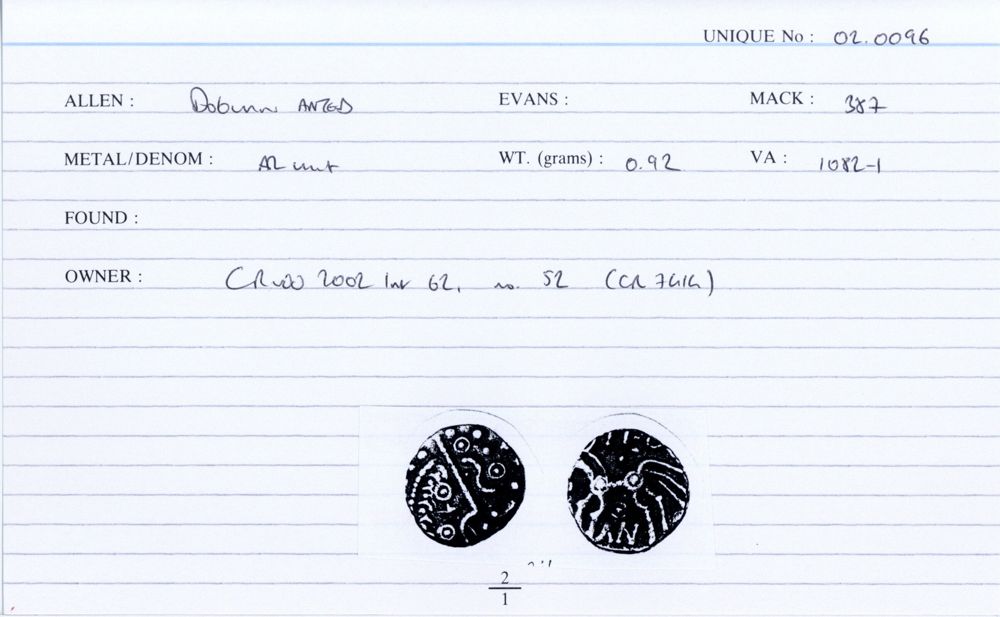 UNIQUE No : 02.0096
ALLEN : Dobunni ANTED EVANS : MACK : 387
METAL/DENOM : AR unit WT. (grams) : 0.92 VA : 1082-1
FOUND :
OWNER : CR 2002 62, no. 52 (CR
2
1